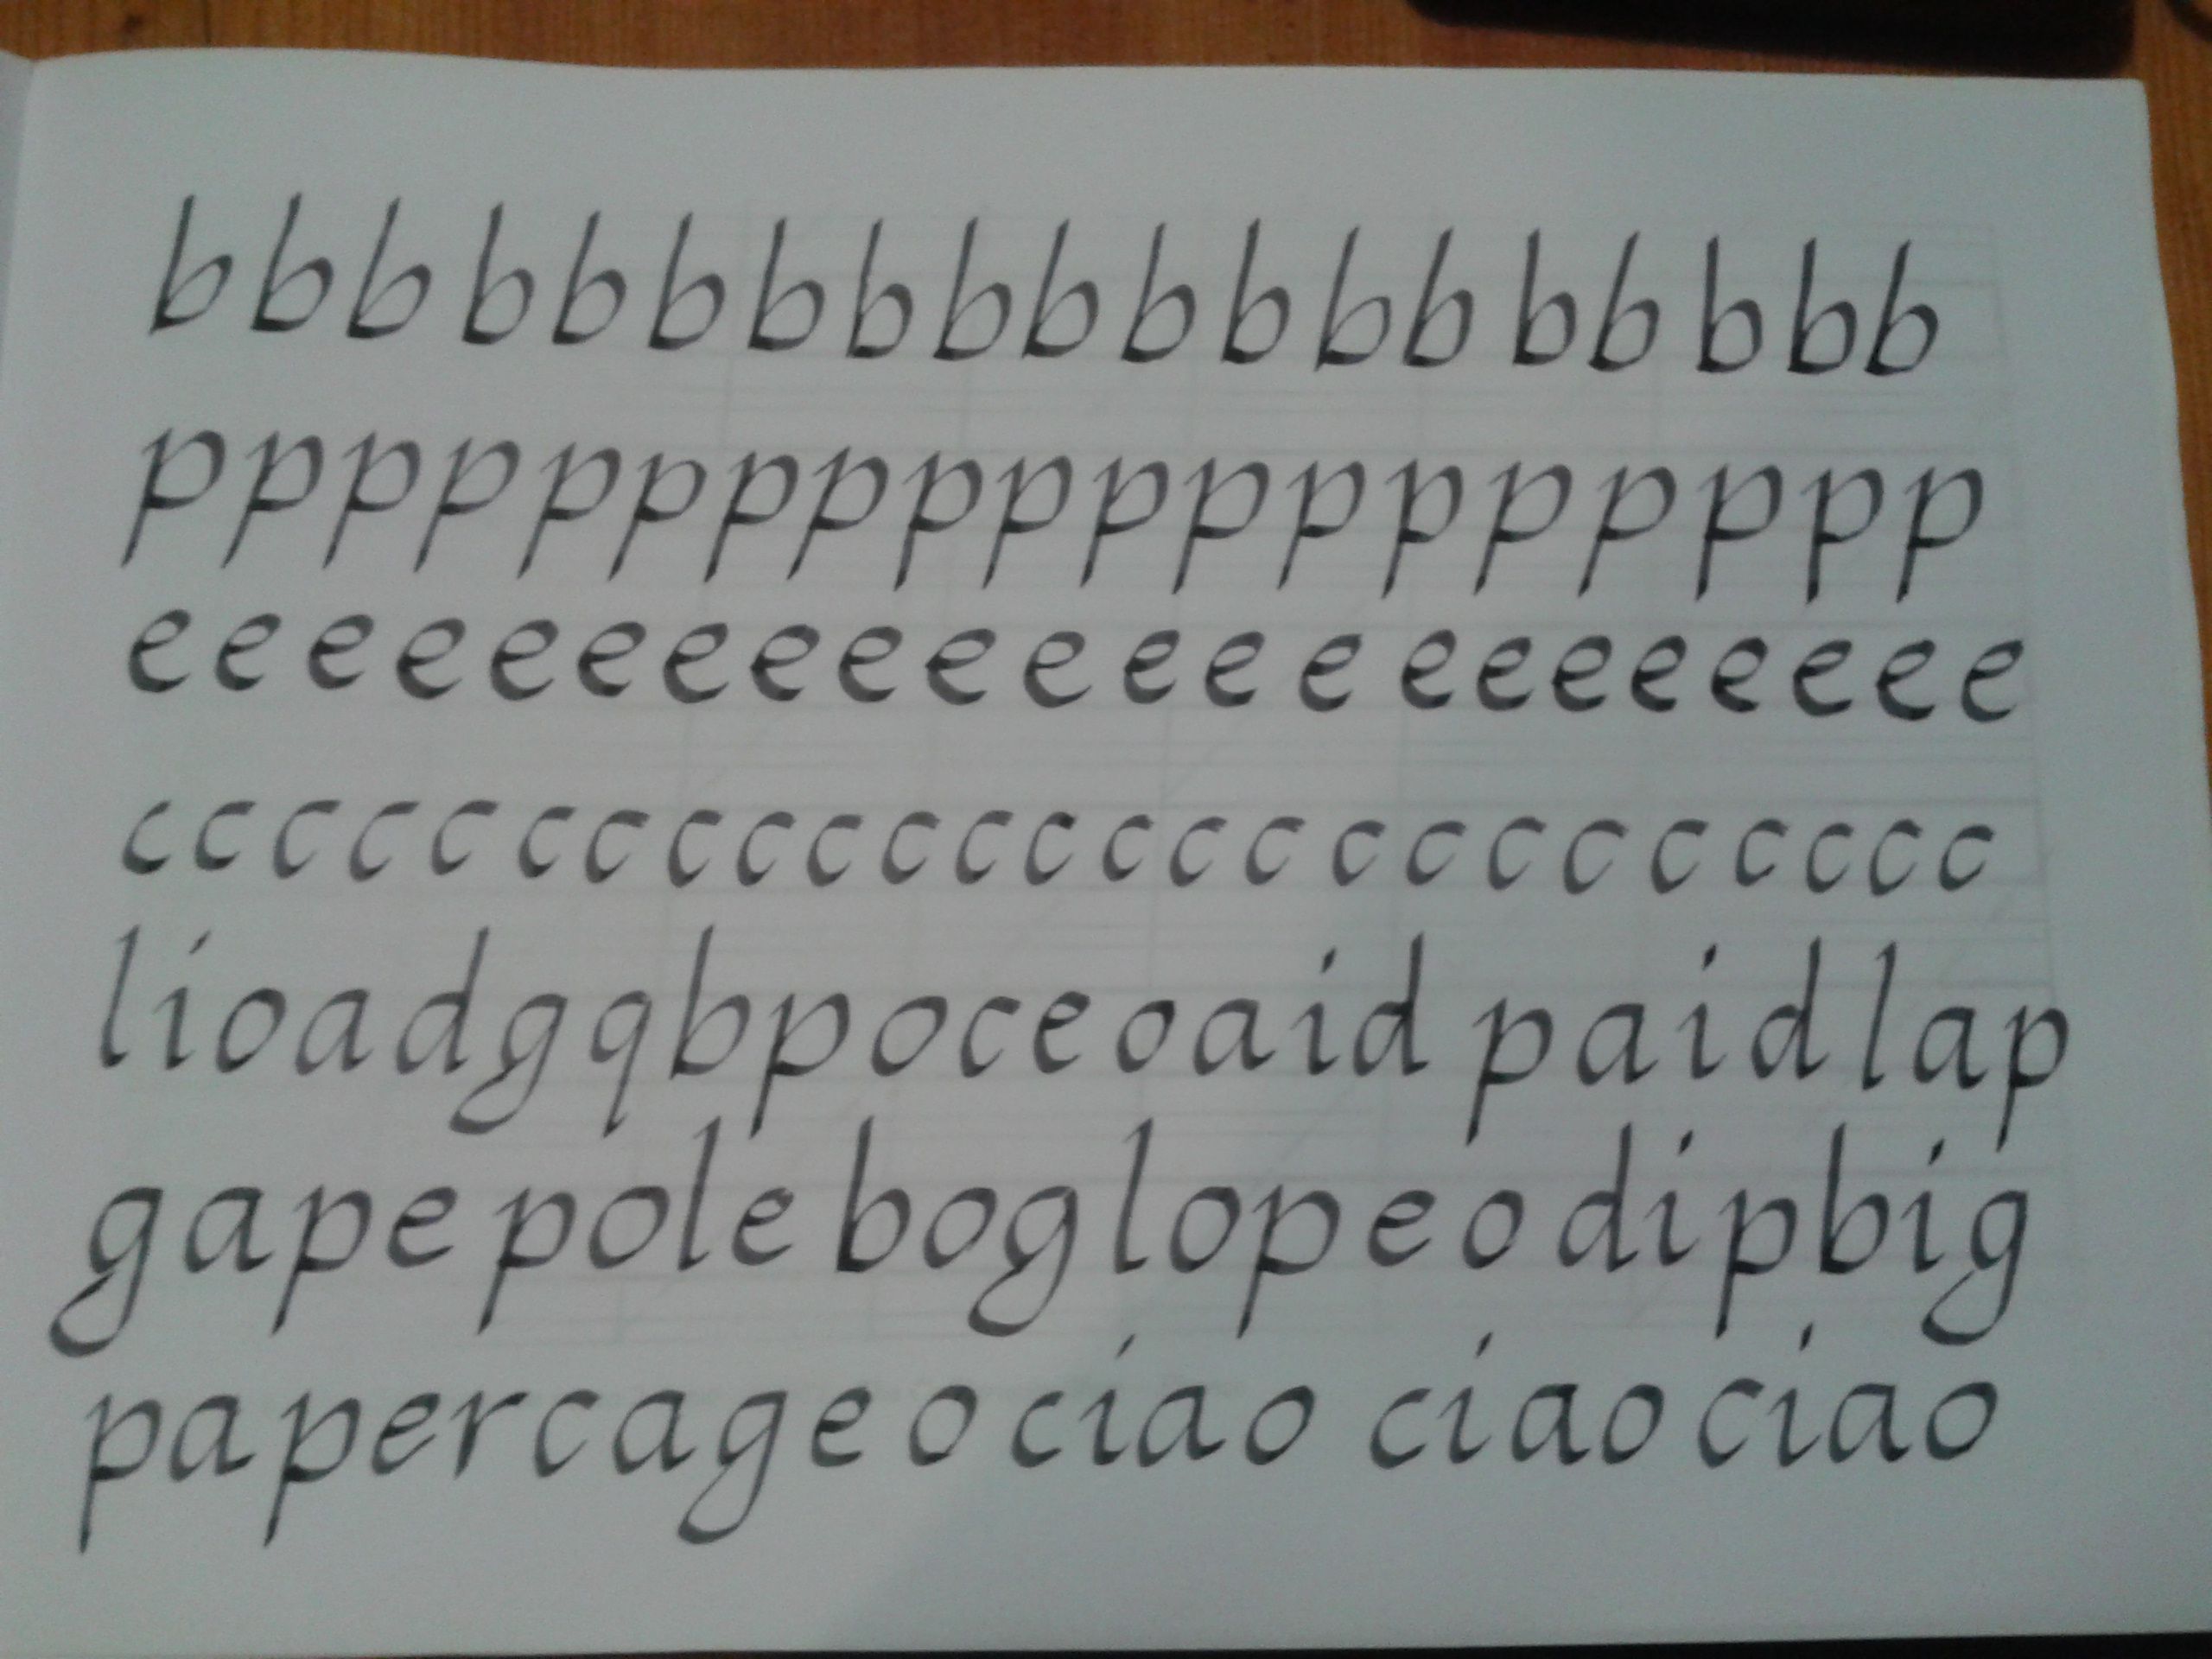 bbbbbbbbbbbbbbbbbbb
ppppppppppppppppppp
eeeeeeeeeeeeeeeeeeeeee
ccccccccccccccccccccccccc
lioadgqbpoceoaid paid lap
gape pole bog lope o dip big
paper cage o ciao ciao ciao